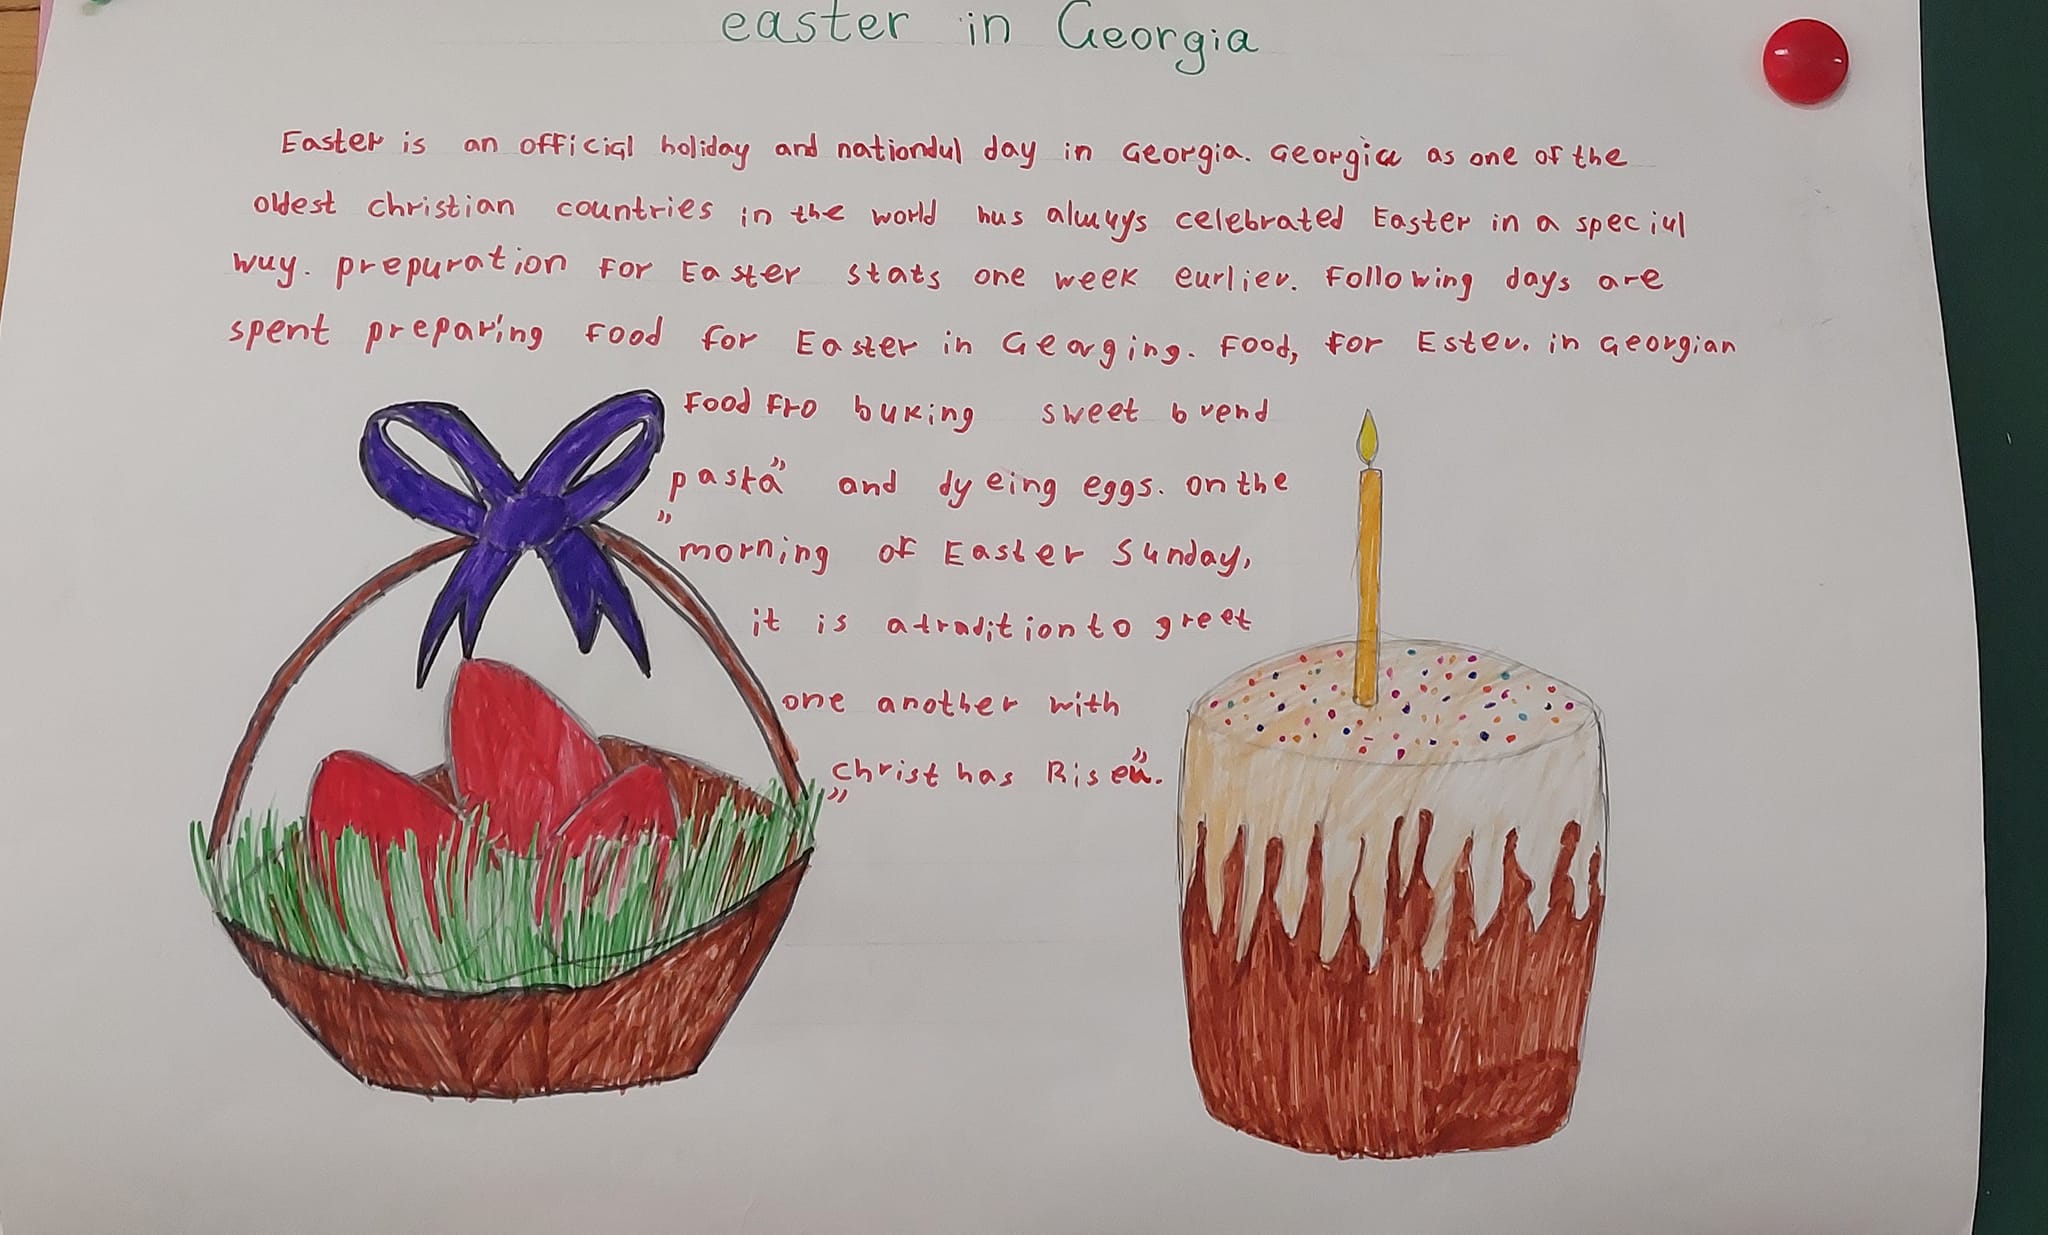 easter in Georgia
Easter is an official holiday and nationdul day in Georgia. Georgia as one of the
oldest christian countries in the world hus alwuys celebrated Easter in a speciul
wuy. prepuration For Easter stats one week eurlier. Following days are
spent preparing Food for Easter in Georging. Food, For Ester. in Georgian
Food Fro buking sweet brend
"paska" and dyeing eggs. on the
morning of Easter Sunday,
it is a tradition to greet
one another with
"Christ has Risen".